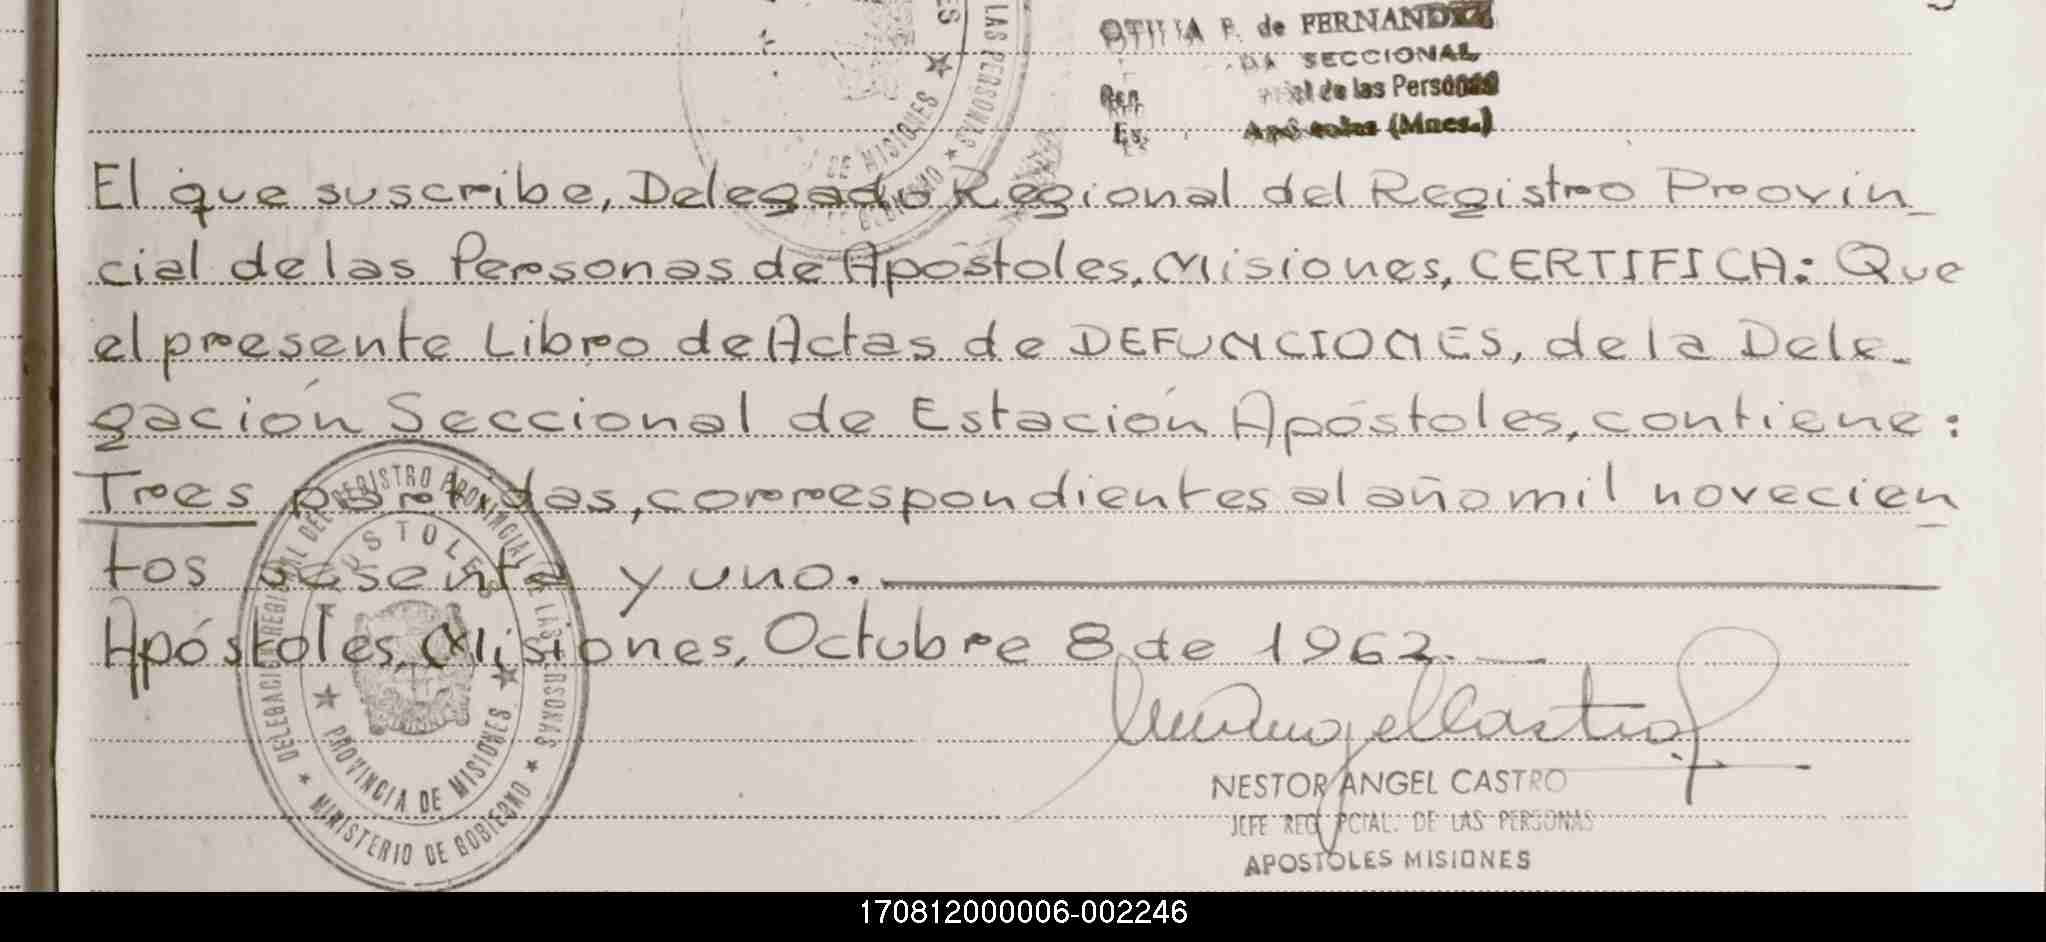 OTILIA F. de FERNANDEZ
SECCIONAL
de las Personas
Apóstoles (Mnes.)
DE MISIONES
LAS PERSONAS
El que suscribe, Delegado Regional del Registro Provin_
cial de las Personas de Apóstoles, Misiones, CERTIFICA: Que
el presente Libro de Actas de DEFUNCIONES, de la Dele_
gación Seccional de Estación Apóstoles, contiene:
Tres partidas, correspondientes al año mil novecien_
tos sesenta y uno.
Apóstoles, Misiones, Octubre 8 de 1962.
DELEGACION REGIONAL DEL REGISTRO PROVINCIAL DE LAS PERSONAS
APOSTOLES
PROVINCIA DE MISIONES
MINISTERIO DE GOBIERNO
NESTOR ANGEL CASTRO
JEFE REG. PCIAL. DE LAS PERSONAS
APOSTOLES MISIONES
170812000006-002246